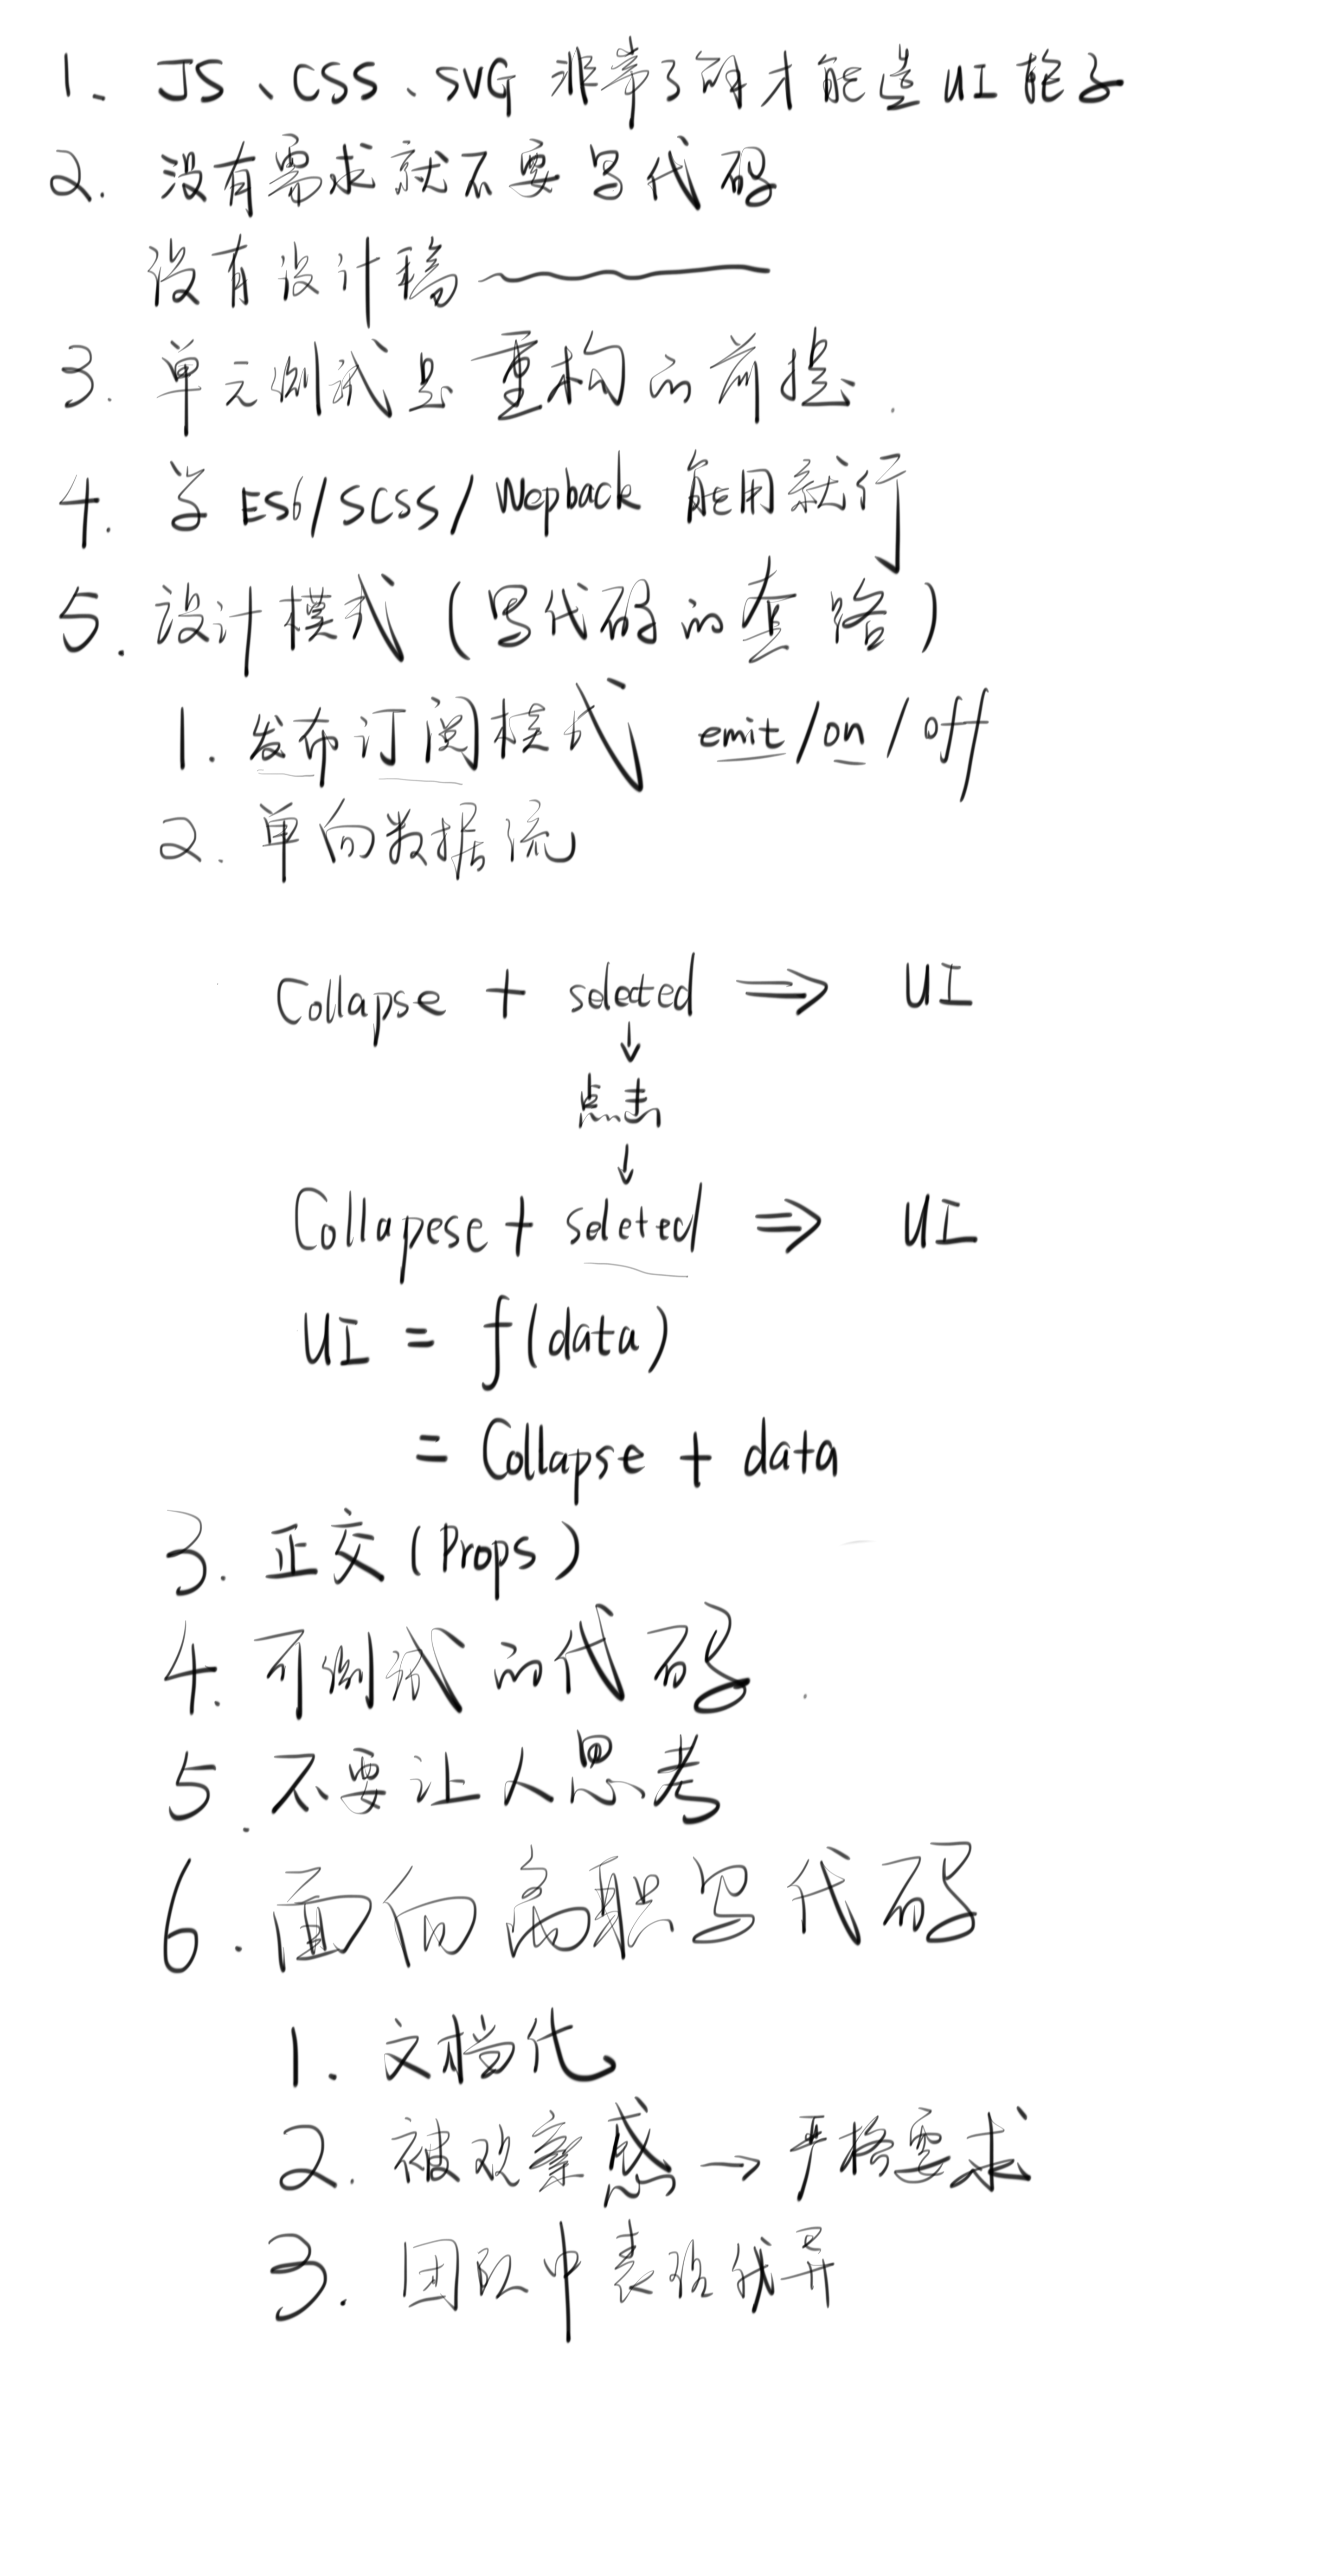 1、JS、CSS、SVG 非常了解才能造UI轮子
2. 没有需求就不要写代码
没有设计稿
3. 单元测试是重构的前提.
4. 学 ES6/SCSS/Wepback 能用就行
5. 设计模式(写代码的套路)
1. 发布订阅模式 emit/on/off
2. 单向数据流
Collapse + selected ⇒ UI
↓
点击
↓
Collapese + seleted ⇒ UI
UI = f(data)
= Collapse + data
3. 正交(Props)
4. 可测试的代码.
5. 不要让人思考
6. 面向离职写代码
1. 文档化
2. 被观察感→严格要求
3. 团队中表现优异